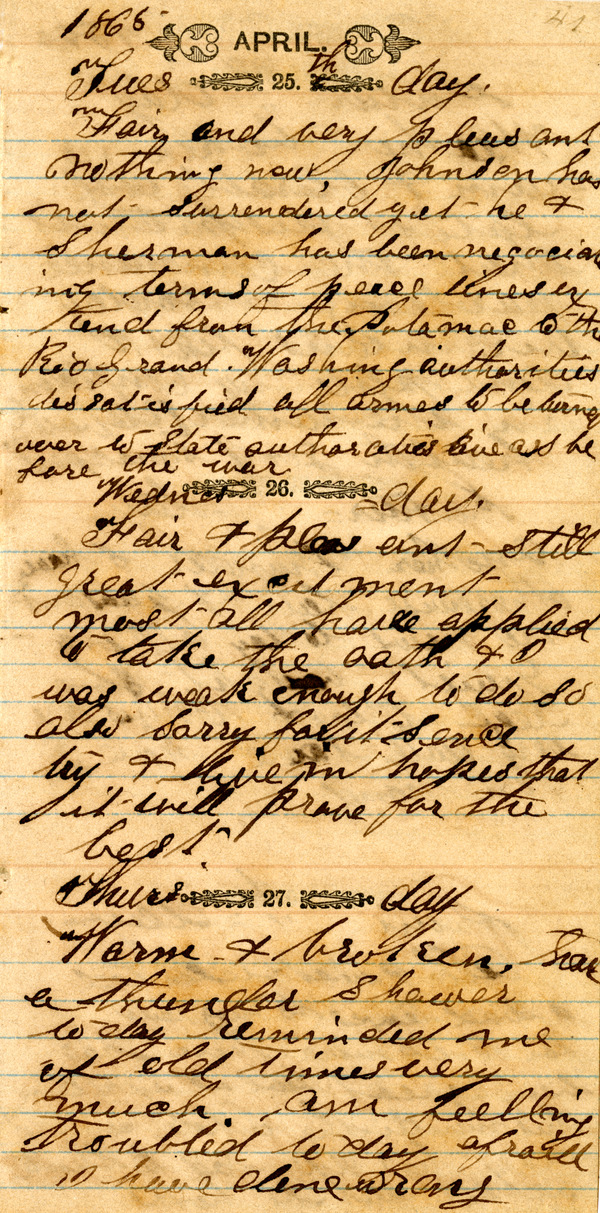 1865
41
APRIL.
Tues 25.th day.
Fair, and very pleas ant
nothing new, Johnson has
not surrendered yet he &
Sherman has been negociat
ing terms of peace lines ex
tend from the Potamac to the
Rio Grand. Washing authorities
dissatisfied all armes to be turned
over to State authoraties live ass be
fore the war
Wednes 26. day.
Fair & pleas ant still
great excitment
most all have applied
to take the oath & I
was weak enough to do so
also sorry for it sence
try & live in hopes that
it will prove for the
best
Thurs 27. day
Warm & broken, had
a thundar shower
to day reminded me
of old times very
much. am feelling
troubled to day afraid
I have done wrong